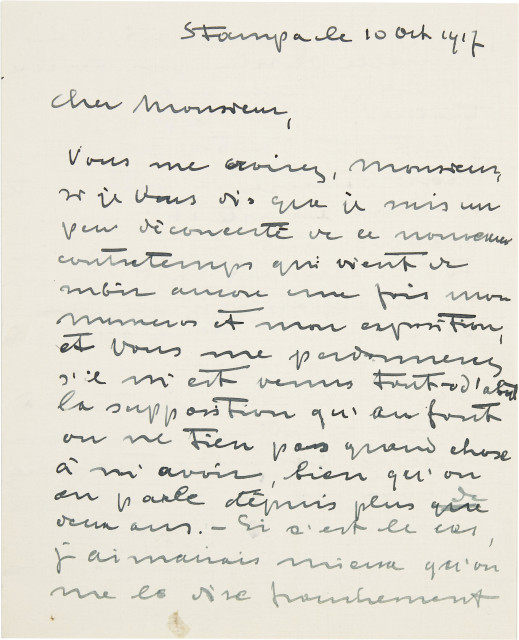 Stampa le 10 Oct 1917
Cher Monsieur,
Vous me croirez, Monsieur,
si je vous dis que je suis un
peu déconcerté de ce nouveau
contretemps qui vient de
subir encore une fois mon
numeros et mon exposition,
et vous me pardonnerez
s'il m'est venus tout-d'abord
la supposition qu'au font
on ne tien pas quand chose
à m'avoir, bien qu'on
en parle dépuis plus de
deux ans. – Si c'est le cas,
j'aimerais mieux qu'on
me le dise franchement